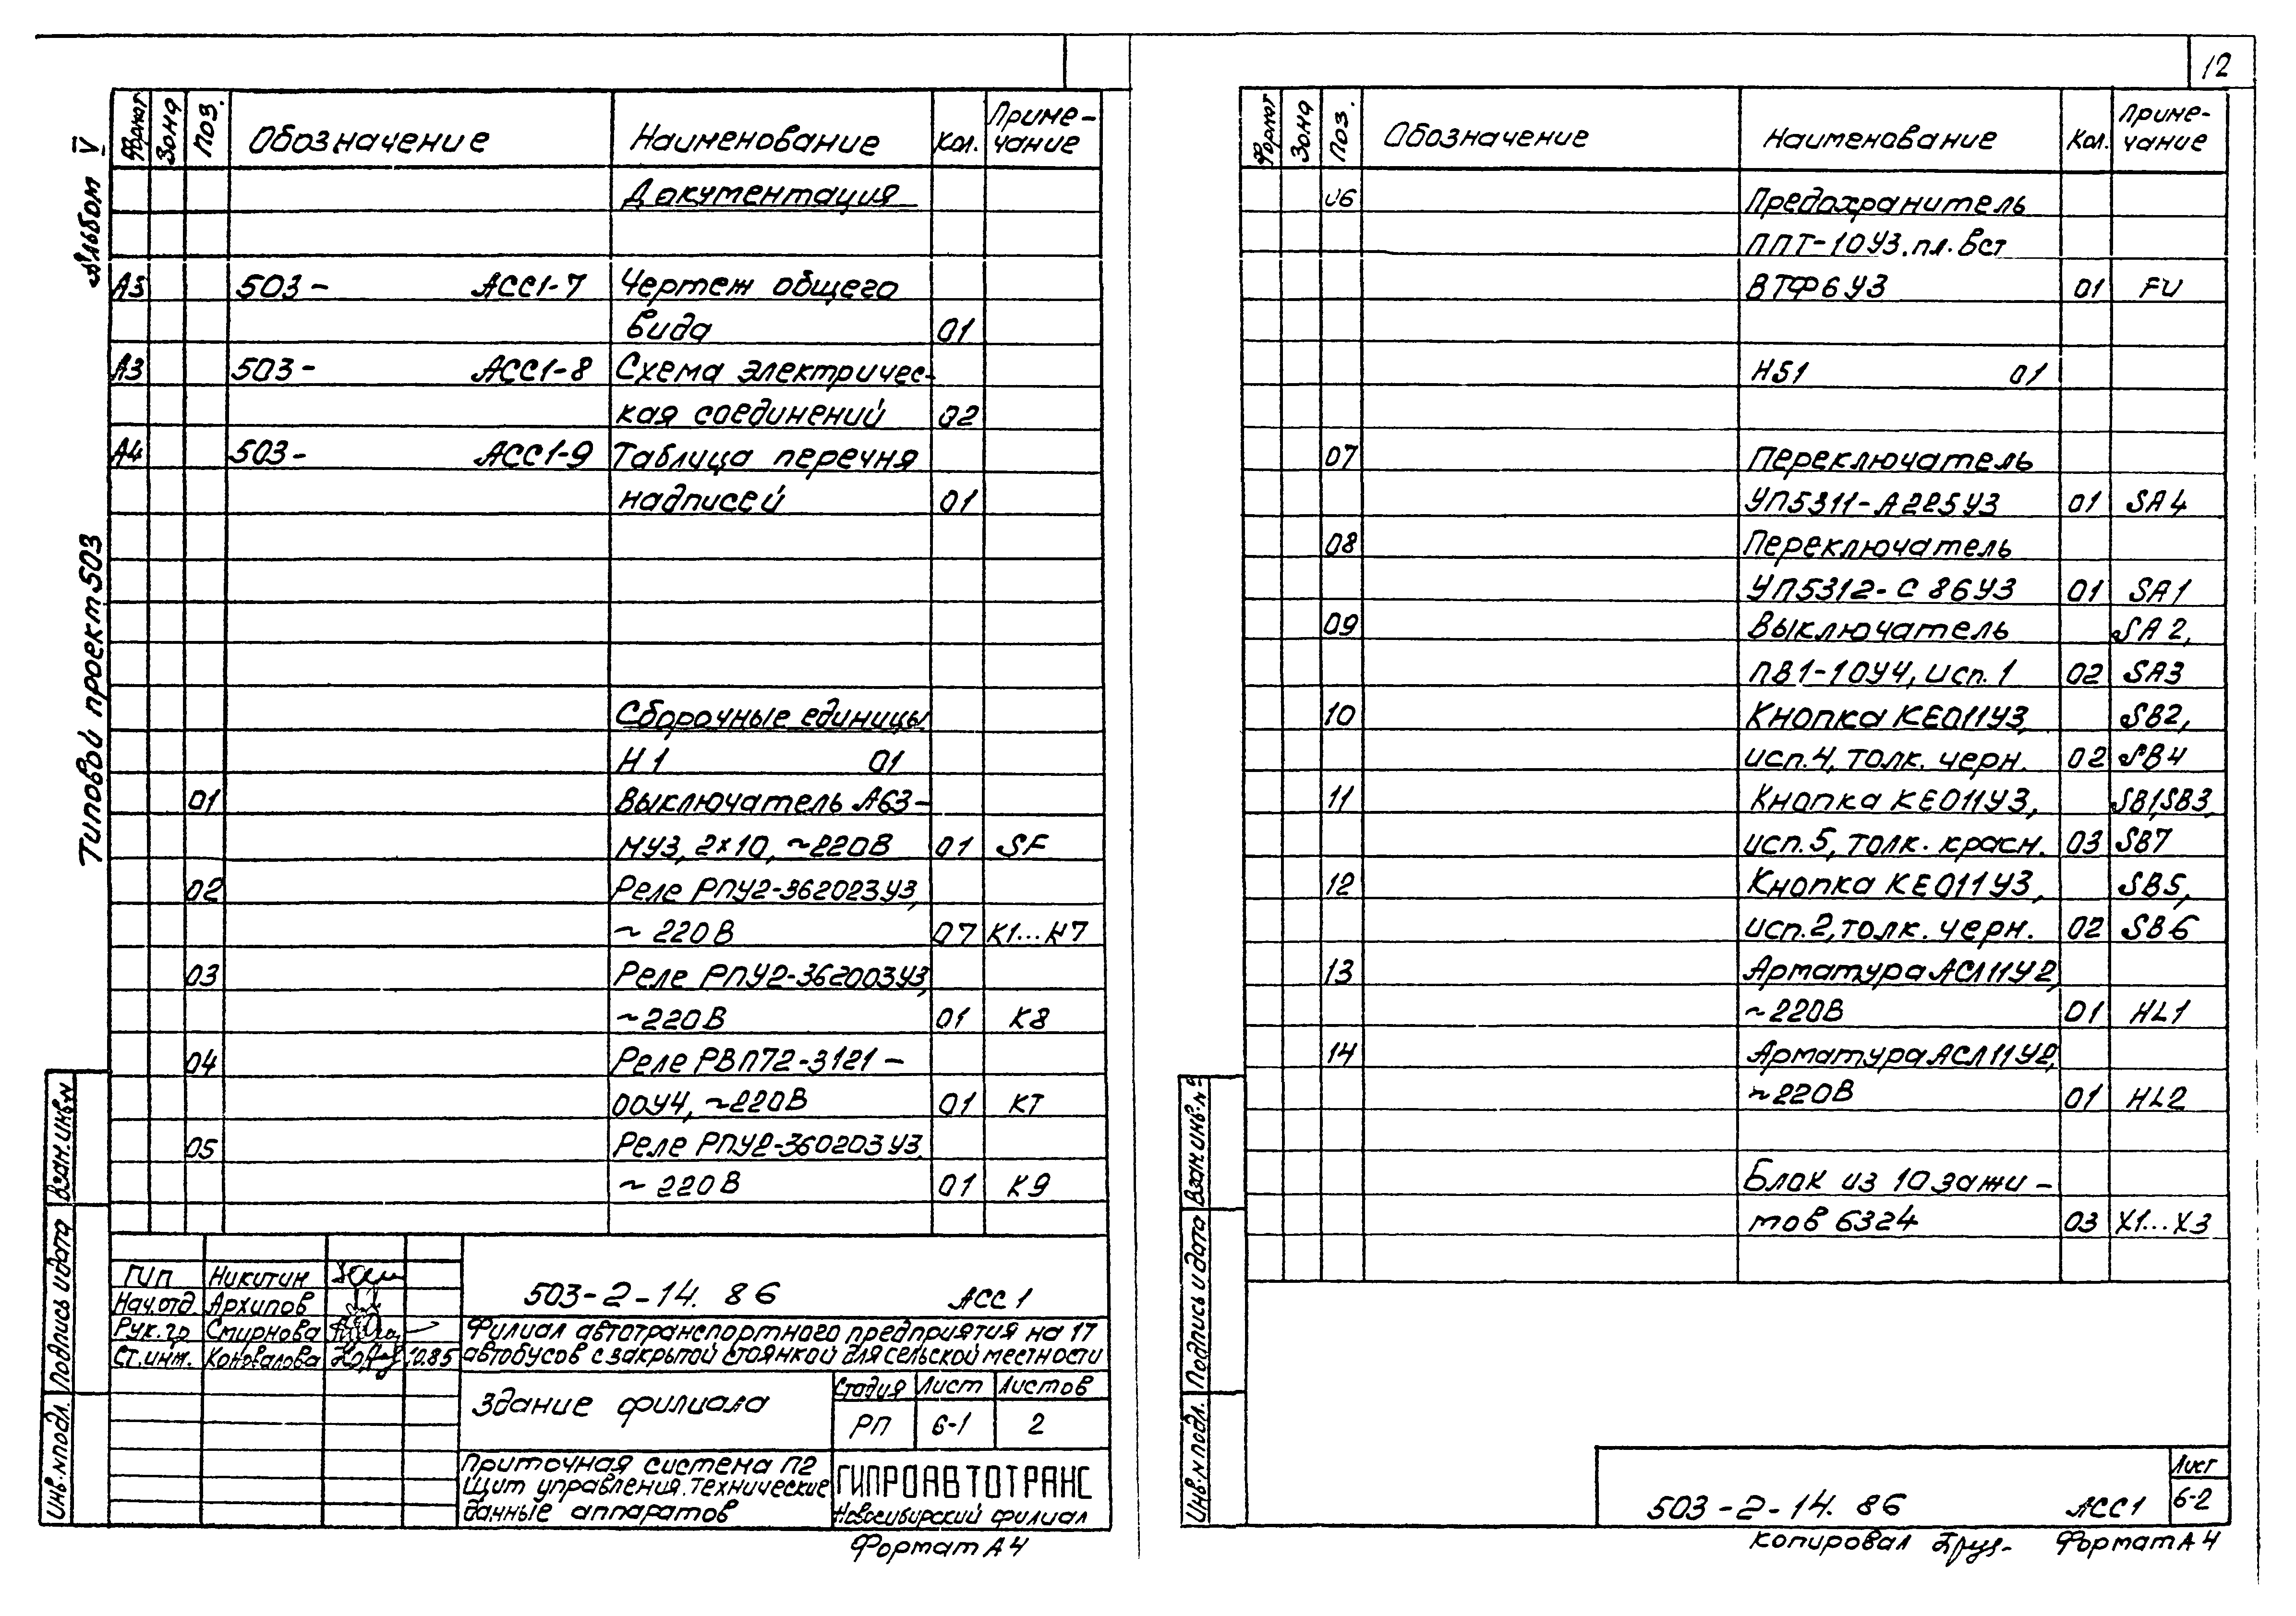 12
Альбом V
Типовой проект 503
Формат Зона Поз. Обозначение Наименование Кол. Примечание
Документация
А3 503- АСС1-7 Чертеж общего
вида 01
А3 503- АСС1-8 Схема электричес-
кая соединений 02
А4 503- АСС1-9 Таблица перечня
надписей 01
Сборочные единицы
Н1 01
01 Выключатель А63-
МУ3, 2×10, ~220В 01 SF
02 Реле РПУ2-362023У3,
~ 220В 07 К1...К7
03 Реле РПУ2-362003У3,
~220В 01 К8
04 Реле РВП72-3121-
00У4, ~220В 01 КТ
05 Реле РПУ2-360203У3,
~ 220В 01 К9
Взам.инв.N
Подпись и дата
Инв.N подл.
ГИП Никитин
Нач.отд Архипов
Рук.гр Смирнова
Ст.инж. Коновалова 10.85
503-2-14.86 АСС1
Филиал автотранспортного предприятия на 17
автобусов с закрытой стоянкой для сельской местности
Здание филиала
Стадия Лист Листов
РП 6-1 2
Приточная система П2
Щит управления. Технические
данные аппаратов
ГИПРОАВТОТРАНС
Новосибирский филиал
Формат А4
Формат Зона Поз. Обозначение Наименование Кол. Примечание
06 Предохранитель
ППТ-10У3. пл. вст
ВТФ6У3 01 FU
Н51 01
07 Переключатель
УП5311-А225У3 01 SA4
08 Переключатель
УП5312-С86У3 01 SA1
09 Выключатель SA2,
ПВ1-10У4, исп.1 02 SA3
10 Кнопка КЕ011У3, SB2,
исп.4, толк. черн. 02 SB4
11 Кнопка КЕ011У3, SB1,SB3,
исп.5, толк. красн. 03 SB7
12 Кнопка КЕ011У3, SB5,
исп.2, толк. черн. 02 SB6
13 Арматура АСЛ11У2,
~220В 01 HL1
14 Арматура АСЛ11У2,
~220В 01 HL2
Блок из 10 зажи-
мов 6324 03 Х1...Х3
Взам.инв.N
Подпись и дата
Инв.N подл.
503-2-14.86 АСС1
Лист
6-2
Копировал Формат А4